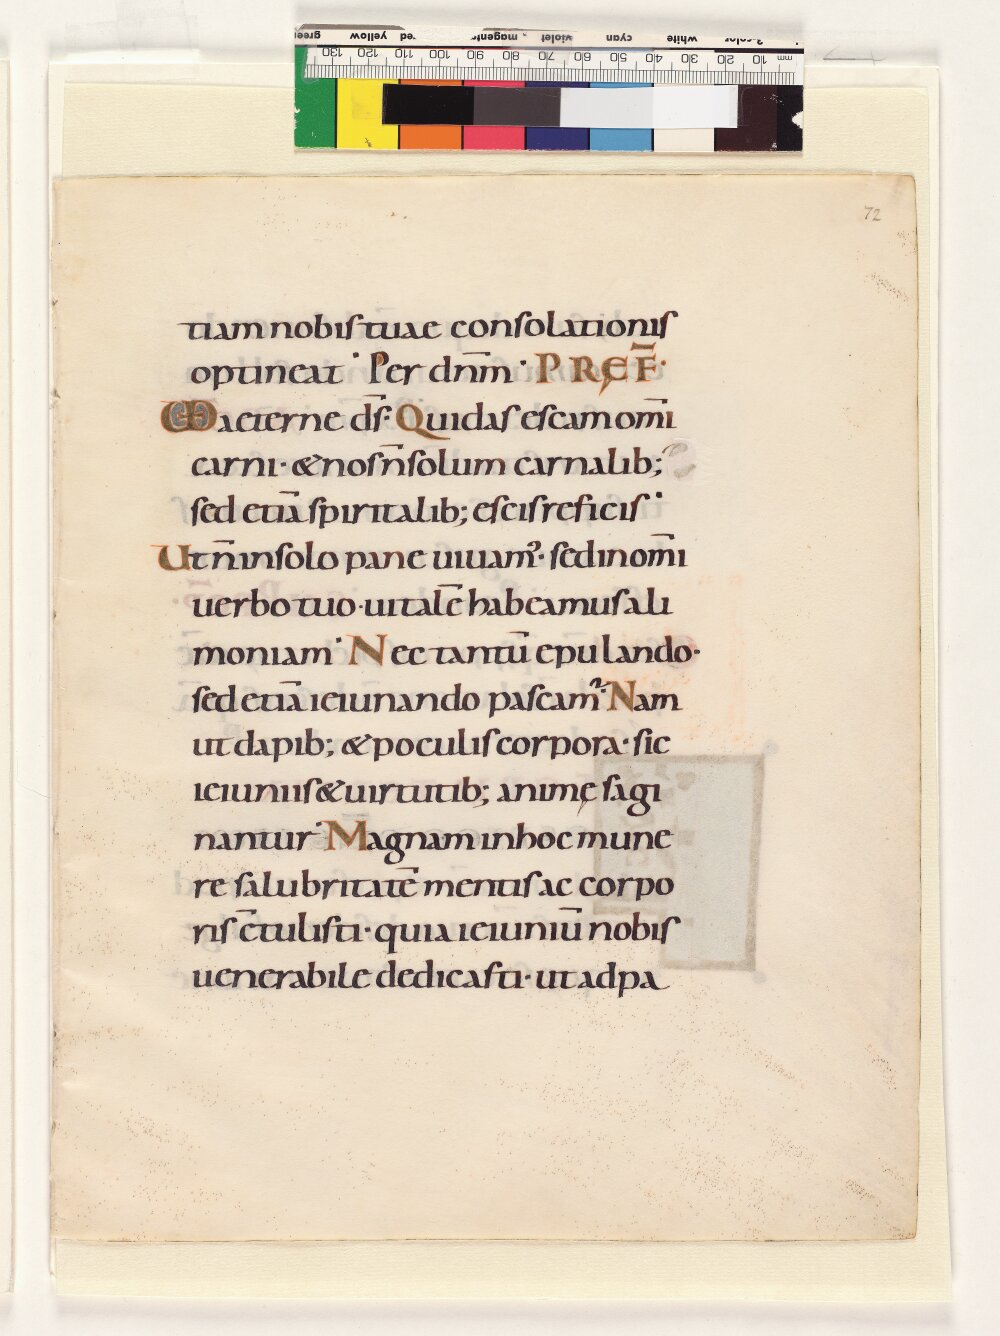 72
tiam nobis tuae consolationis
optineat · Per dñm · PREF̄·
Vaeterne d̄s· Qui das escam om̄i
carni· & nos n̄ solum carnalib;
sed etiā spiritalib; escis reficis·
Ut n̄ in solo pane uiuam᾿· sed in om̄i
uerbo tuo· uitalē habeamus ali
moniam· Nec tantū epulando·
sed etiā ieiunando pascam᾿· Nam
ut dapib; & poculis corpora· sic
ieiuniis & uirtutib; animę sagi
nantur· Magnam in hoc mune
re salubritatē mentis ac corpo
ris c̄tulisti· quia ieiuniū nobis
uenerabile dedicasti· ut ad pa
green yellow red magenta violet cyan white
mm 10 20 30 40 50 60 70 80 90 100 110 120 130